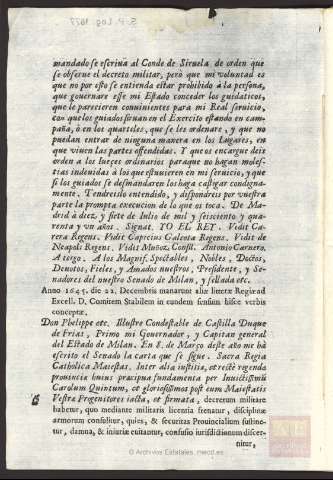 mandado se escriua al Conde de Siruela de orden que
se obserue el decreto militar, però que mi voluntad es
que no por esto se entienda estar prohibido à la persona,
que gouernare esse mi Estado conceder los guidaticos,
que le parecieren conuinientes para mi Real seruicio,
con que los guiados siruan en el Exercito estando en cam-
paña, ò en los quarteles, que se les ordenare, y que no
puedan entrar de ninguna manera en los Lugares, en
que viuen las partes offendidas. Y que os encargue deis
orden a los Iuezes ordinarios paraque no hagan moles-
tias indeuidas à los que estuuieren en mi seruicio, y que
si los guiados se desmandaren los haga castigar condigna-
mente. Tendreislo entendido, y dispondreis por vuestra
parte la prompta execucion de lo que os toca. De Ma-
drid à diez, y siete de Iulio de mil y seiscientos y qua-
renta y vn años. Signat. YO EL REY. Vidit Car-
rera Regens. Vidit Capicius Galeota Regens. Vidit de
Neapoli Regens. Vidit Muñoz. Consil. Antonio Carnero.
A tergo. A los Magnif. Spectables, Nobles, Doctos,
Deuotos, Fieles, y Amados nuestros, Presidente, y Se-
nadores del nuestro Senado de Milan, y sellada etc.
Anno 1645. die 22. Decembris manarunt aliæ litteræ Regiæ ad
Excell. D. Comitem Stabilem in eundem sensum hisce verbis
conceptæ.
Don Phelippe etc. Illustre Condestable de Castilla Duque
de Frias, Primo mi Gouernador, y Capitan general
del Estado de Milan. En 8. de Março deste año me hà
escrito el Senado la carta que se sigue. Sacra Regia
Catholica Maiestas. Inter alia iustitia, et rectè regenda
prouincia huius præcipua fundamenta per Inuictissimum
Carolum Quintum, et gloriosissimos post eum Maiestatis
Vestræ Progenitores iacta, et firmata, decretum militare
habetur, quo mediante militaris licentia frenatur, disciplinæ
armorum consulitur, quies, & securitas Prouincialium sustine-
tur, damna, & iniuriæ euitantur, confusio iurisdictionum discer-
nitur,
© Archivos Estatales, mecd.es